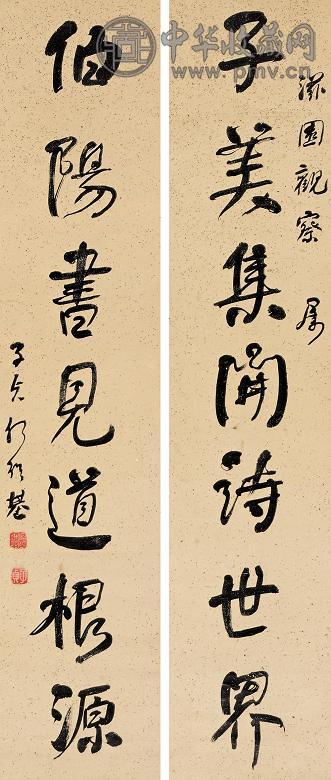 滋園觀察屬
子美集開詩世界
伯陽書見道根源
子貞何紹基
中华收藏网
www.pmv.cn